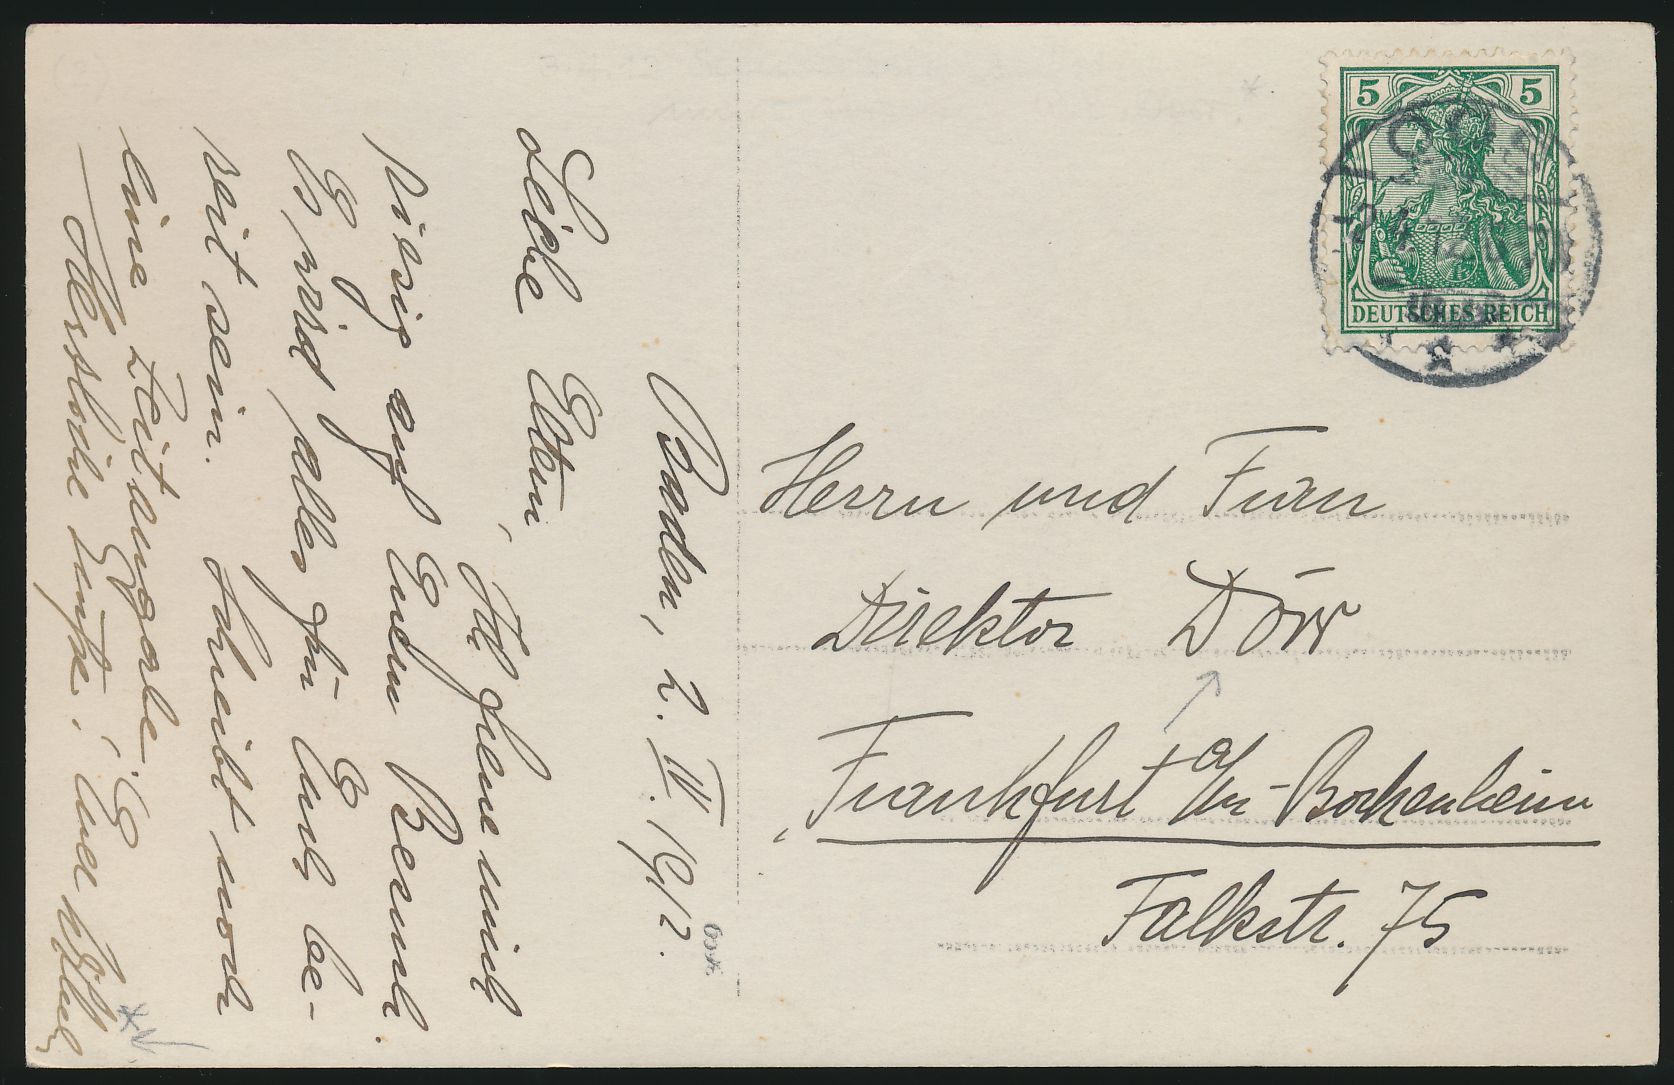 Baden, 2. IV. 1912.
Liebe Eltern,
Ich freue mich
riesig auf Euern Besuch.
Es wird alles für Euch be-
reit sein. Schreibt noch
eine Zeitangabe.
Herzliche Grüße! Euer
5 5
DEUTSCHES REICH
Herrn und Frau
Direktor Dörr
Frankfurt a/M-Bockenheim
Falkstr. 75